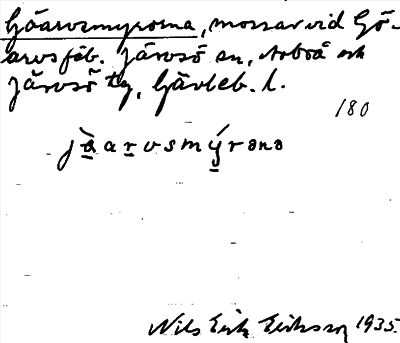 Göarvsmyrorna, mossar vid Gö-
arvs fäb. Järvsö sn, Arbrå och
Järvsö tg, Gävleb. l.
180
jàarvsmýrənə
Nils Erik Eriksson 1935.